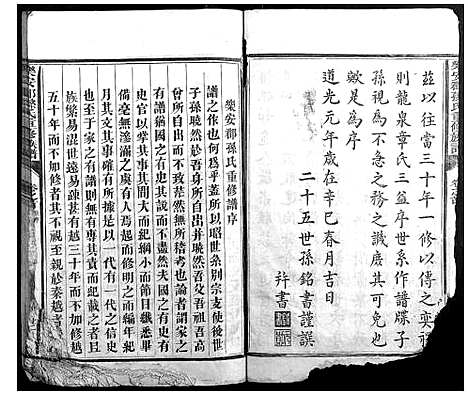 茲以往當三十年一修以傳之奕
則龍泉章氏三益序世系作譜牒子
孫視為不急之務之譏庶其可免也
歟是為序
道光元年歲在辛巳春月吉日
二十五世孫銘書謹撰
并書
樂安郡孫氏重修族譜
樂安郡孫氏重修譜序
譜之作也何昉乎所以昭世系別宗支使後世
子孫曉然於吾身所自出并曉然吾父吾祖吾高
曾所自出而不致茫然無所稽考也說者謂家之
有譜猶國之有史其說而不盡然夫國之有史領於
史官以掌其事其間大而紀綱小而節目纖悉畢
備毫無滲漏之虞一人焉起而修明之而編年紀
月其文其事有所據是以一代有一代之信史
也至于家之有譜則無有專其責而紀載之者且
族繁易混世遠易疎越三十年而不加修越
五十年而不加修者其不視至親於秦越者